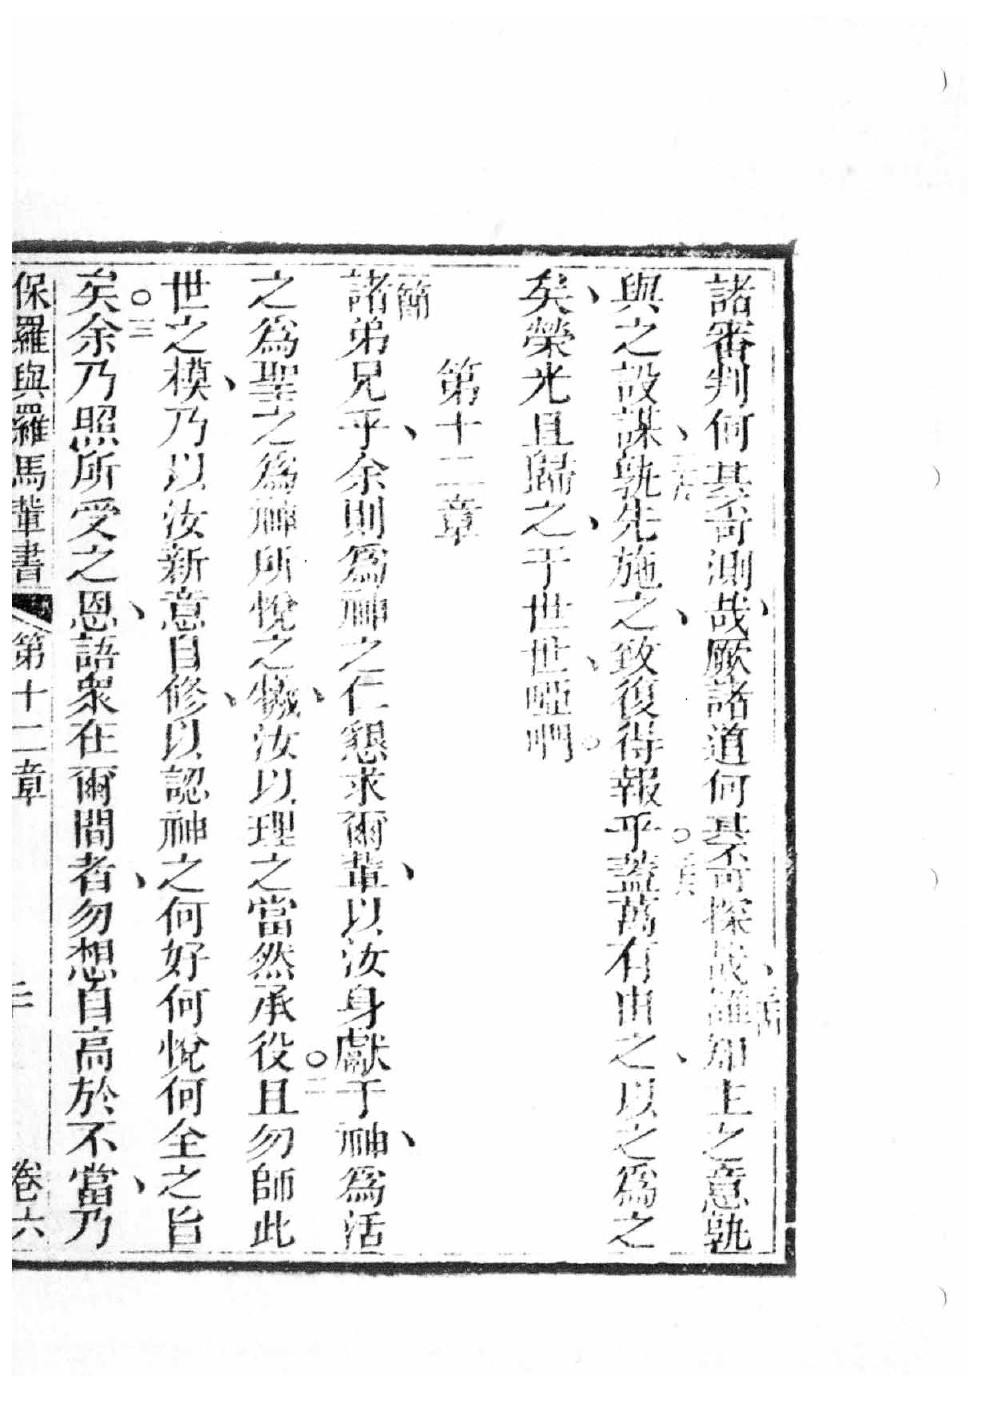 諸審判何其不可測哉、厥諸道何其不可探哉、誰知主之意孰
與之設謀、孰先施之、致復得報乎○蓋萬有由之、以之爲之
矣、榮光且歸之、于世世、啞們○
第十二章
一節
諸弟兄乎、余則爲神之仁懇求爾輩、以汝身獻于神、爲活
之爲聖之爲神所悅之犧、汝以理之當然承役○二且勿師此
世之模、乃以汝新意自修、以認神之何好何悅何全之旨
矣○三余乃照所受之恩、語衆在爾間者、勿想自高於不當、乃
保羅與羅馬輩書 第十二章 二 卷六